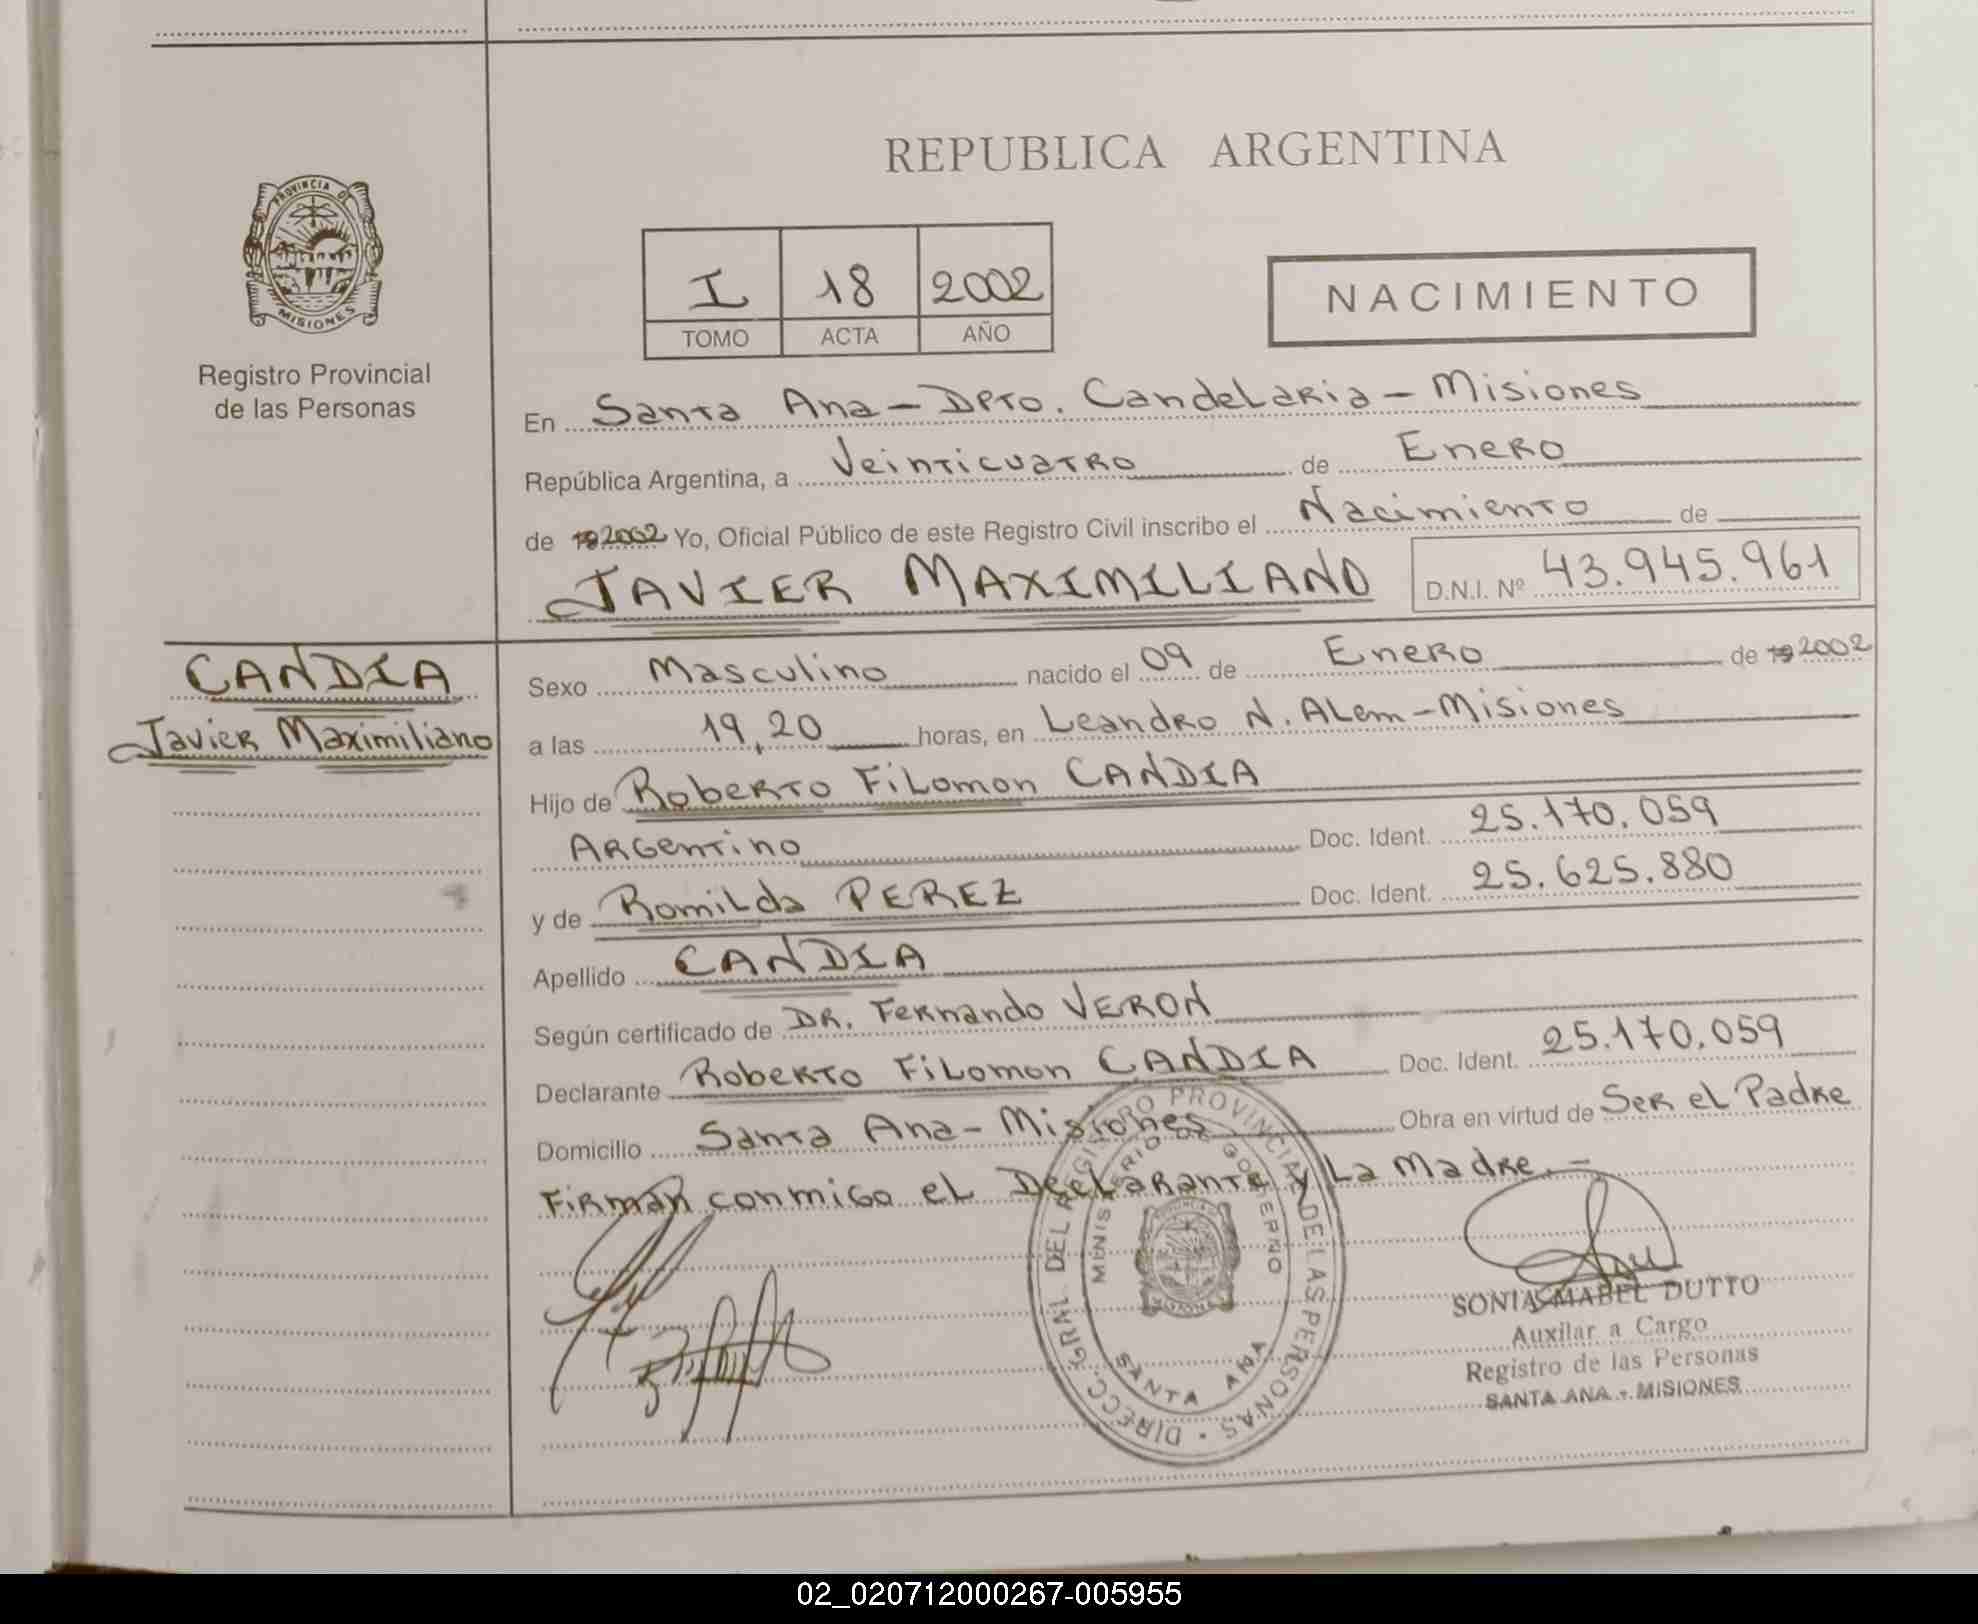 REPUBLICA ARGENTINA
PROVINCIA DE
MISIONES
Registro Provincial
de las Personas
I 18 2002
TOMO ACTA AÑO
NACIMIENTO
En Santa Ana - Dpto. Candelaria - Misiones
República Argentina, a Veinticuatro de Enero
de 19 2002 Yo, Oficial Público de este Registro Civil inscribo el Nacimiento de
JAVIER MAXIMILIANO D.N.I. Nº 43.945.961
CANDIA
Javier Maximiliano
Sexo Masculino nacido el 09 de Enero de 19 2002
a las 19,20 horas, en Leandro N. Alem - Misiones
Hijo de Roberto Filomon CANDIA
Argentino Doc. Ident. 25.170.059
y de Romilda PEREZ Doc. Ident. 25.625.880
Apellido CANDIA
Según certificado de DR. Fernando VERON
Declarante Roberto Filomon CANDIA Doc. Ident. 25.170.059
Domicilio Santa Ana - Misiones Obra en virtud de Ser el Padre
Firman conmigo el Declarante y La Madre.-
DIRECC. GRAL DEL REGISTRO PROVINCIAL DE LAS PERSONAS
MINISTERIO DE GOBIERNO
MISIONES
SANTA ANA
SONIA MABEL DUTTO
Auxilar a Cargo
Registro de las Personas
SANTA ANA - MISIONES
02_020712000267-005955